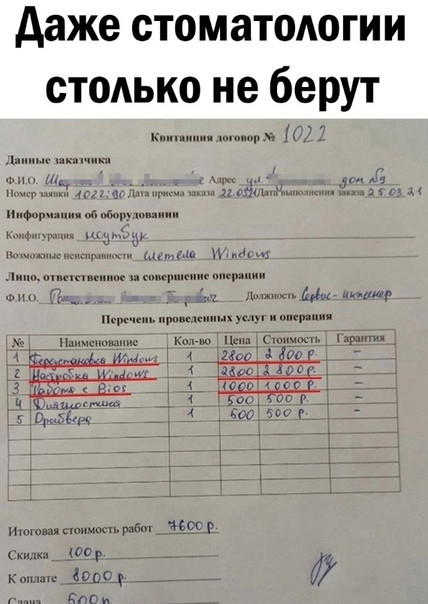 Даже стоматологии
столько не берут
Квитанция договор № 1022
Данные заказчика
Ф.И.О. Адрес ул. дом №9
Номер заявки 1022:90 Дата приема заказа 22.03.21 Дата выполнения заказа 25.03.21
Информация об оборудовании
Конфигурация ноутбук
Возможные неисправности слетела Windows
Лицо, ответственное за совершение операции
Ф.И.О. Должность Сервис-инженер
Перечень проведенных услуг и операция
№ Наименование Кол-во Цена Стоимость Гарантия
1 Переустановка Windows 1 2800 2 800 р. –
2 Настройка Windows 1 2800 2 800 р. –
3 Работа с Bios 1 1000 1 000 р. –
4 Диагностика 1 500 500 р. –
5 Драйвера 1 500 500 р. –
Итоговая стоимость работ 7600 р.
Скидка 100 р.
К оплате 8000 р.
Сдача 500 р.